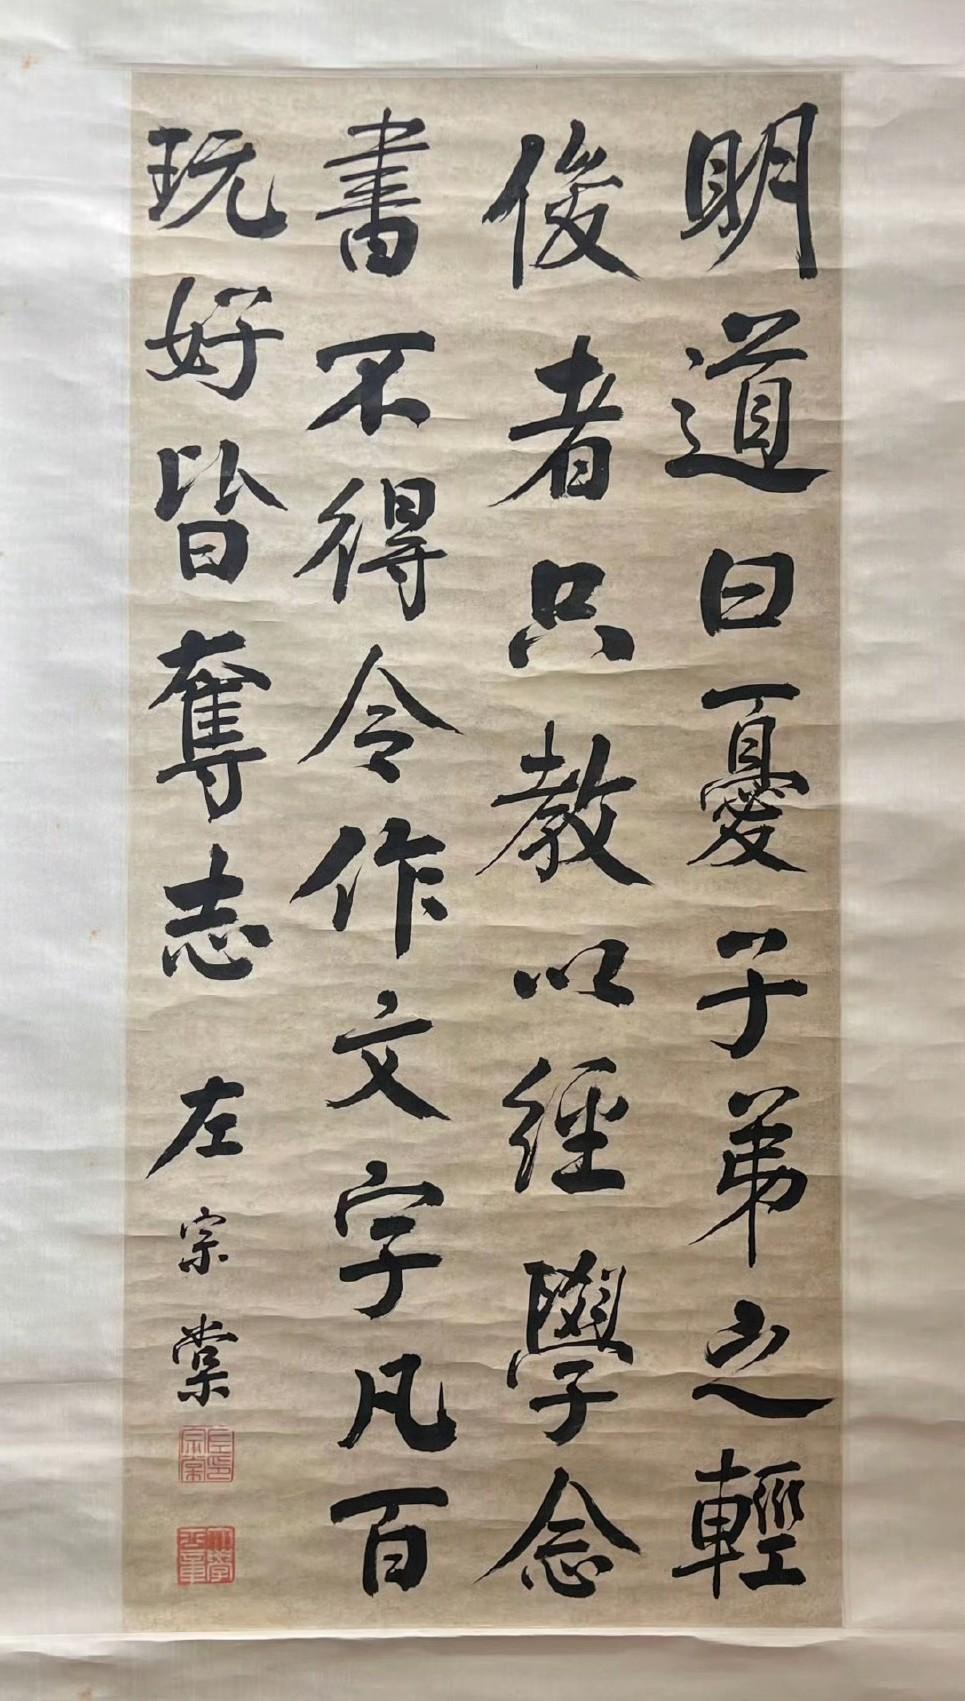 明道曰憂子弟之輕
俊者只教以經學念
書不得令作文字凡百
玩好皆奪志
左宗棠